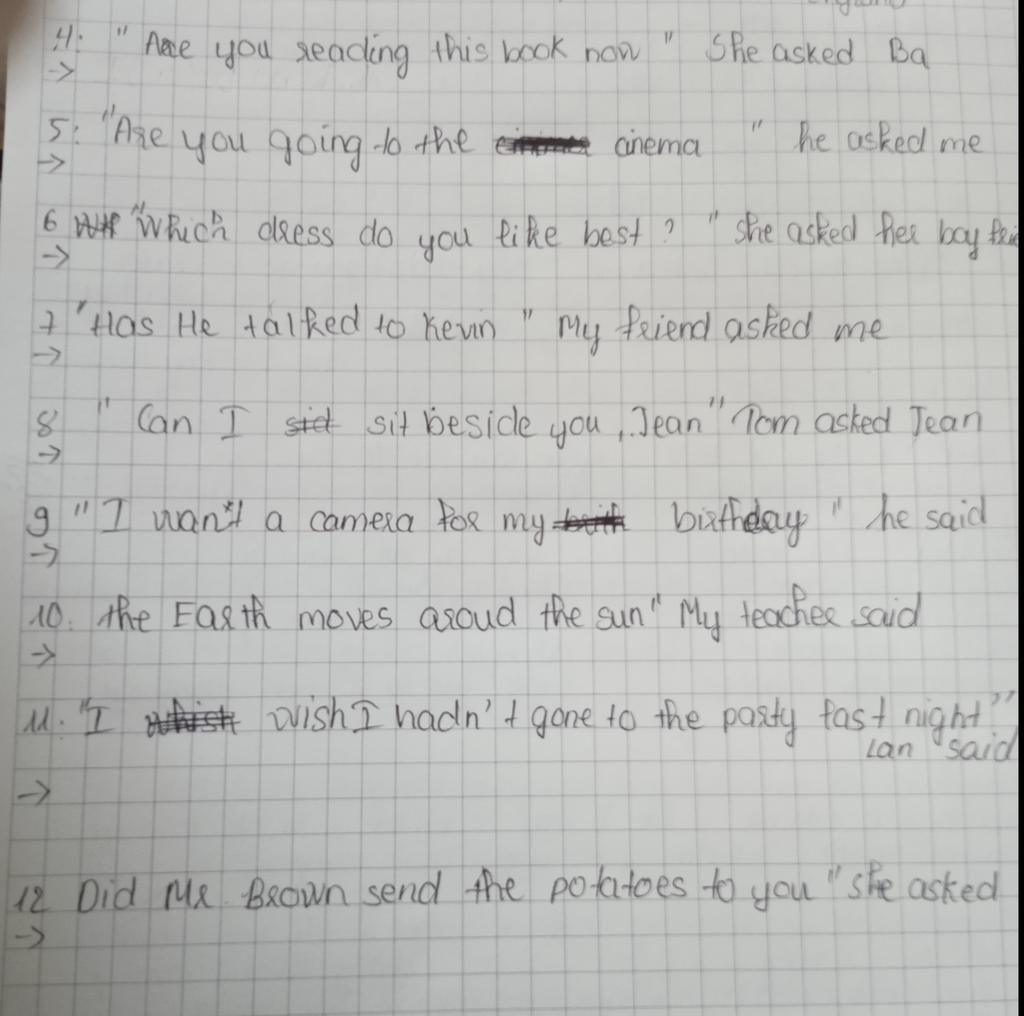 4. "Are you reading this book now" She asked Ba
->
5. "Are you going to the cinema" he asked me
->
6 "Which dress do you like best?" she asked her boy frie
->
7 "Has He talked to Kevin" My friend asked me
->
8 "Can I sit beside you, Jean" Tom asked Jean
->
9 "I want a camera for my birthday" he said
->
10. the Earth moves aroud the sun" My teacher said
->
11. "I wish I hadn't gone to the party last night"
Lan said
->
12 Did Mr. Brown send the potatoes to you" she asked
->